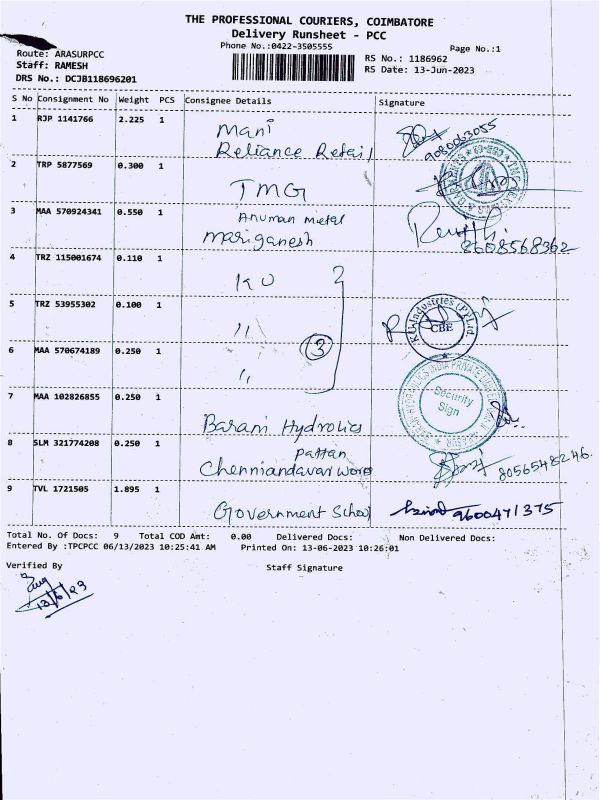 THE PROFESSIONAL COURIERS, COIMBATORE
Delivery Runsheet - PCC
Phone No.:0422-3505555
Page No.:1
Route: ARASURPCC
Staff: RAMESH
DRS No.: DCJB118696201
RS No.: 1186962
RS Date: 13-Jun-2023
S No Consignment No Weight PCS Consignee Details Signature
1 RJP 1141766 2.225 1 Mani
Reliance Retail 9080063055
2 TRP 5877569 0.300 1
TMG
3 MAA 570924341 0.550 1 Anuman metal
Mariganesh 8608568362
4 TRZ 115001674 0.110 1
KU
5 TRZ 53955302 0.100 1
"
KU Industries (P) Ltd
CBE
6 MAA 570674189 0.250 1 3
"
7 MAA 102826855 0.250 1
Barani Hydrolics
Security
Sign
8 SLM 321774208 0.250 1 Pattan
Chenniandavar 8056548246
9 TVL 1721505 1.895 1
Government School 9600471375
Total No. Of Docs: 9 Total COD Amt: 0.00 Delivered Docs: Non Delivered Docs:
Entered By :TPCPCC 06/13/2023 10:25:41 AM Printed On: 13-06-2023 10:26:01
Verified By Staff Signature
13/6/23